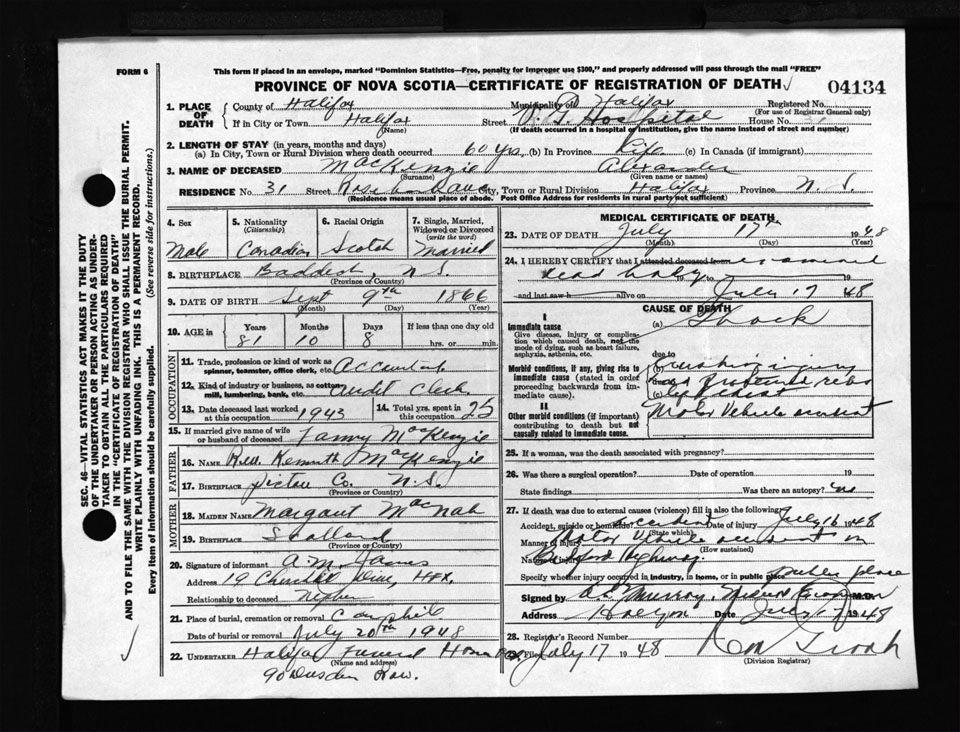 FORM 6
This form if placed in an envelope, marked "Dominion Statistics—Free, penalty for improper use $300," and properly addressed will pass through the mail "FREE"
PROVINCE OF NOVA SCOTIA—CERTIFICATE OF REGISTRATION OF DEATH
04134
1. PLACE OF DEATH
County of Halifax Municipality of Halifax Registered No.
(For use of Registrar General only)
If in City or Town Halifax Street V. G. Hospital House No.
(Name) (If death occurred in a hospital or institution, give the name instead of street and number)
2. LENGTH OF STAY (in years, months and days)
(a) In City, Town or Rural Division where death occurred 60 yrs. (b) In Province Life (c) In Canada (if immigrant)
3. NAME OF DECEASED MacKenzie Alexander
(Surname) (Given name or names)
RESIDENCE No. 31 Street City, Town or Rural Division Halifax Province N. S.
(Residence means usual place of abode. Post Office Address for residents in rural parts not sufficient)
4. Sex 5. Nationality (Citizenship) 6. Racial Origin 7. Single, Married, Widowed or Divorced (write the word)
Male Canadian Scotch Married
8. BIRTHPLACE Baddeck, N. S.
(Province or Country)
9. DATE OF BIRTH Sept 9th 1866
(Month) (Day) (Year)
10. AGE in Years Months Days If less than one day old
81 10 8 hrs. or min.
OCCUPATION
11. Trade, profession or kind of work as spinner, teamster, office clerk, etc. Accountant
12. Kind of industry or business, as cotton mill, lumbering, bank, etc. Audit Clerk
13. Date deceased last worked at this occupation 1943 14. Total yrs. spent in this occupation 25
15. If married give name of wife or husband of deceased Fanny MacKenzie
FATHER
16. NAME Rev. Kenneth MacKenzie
17. BIRTHPLACE Pictou Co. N. S.
(Province or Country)
MOTHER
18. MAIDEN NAME Margaret MacNab
19. BIRTHPLACE Scotland
(Province or Country)
20. Signature of informant A. M. James
Address 19 Churchill Drive, Hfx.
Relationship to deceased Nephew
21. Place of burial, cremation or removal Camphill
Date of burial or removal July 20th 1948
22. UNDERTAKER Halifax Funeral Home
(Name and address)
90 Dresden Row.
MEDICAL CERTIFICATE OF DEATH
23. DATE OF DEATH July 17th 1948
(Month) (Day) (Year)
24. I HEREBY CERTIFY that I attended deceased from examined
dead body 19 to July 17 1948
and last saw h alive on 19
CAUSE OF DEATH
I
Immediate cause (a) Shock
Give disease, injury or complication which caused death, not the mode of dying, such as heart failure, asphyxia, asthenia, etc.
due to
Morbid conditions, if any, giving rise to immediate cause (stated in order proceeding backwards from immediate cause).
(b) Crushing injury and fractured ribs
(c)
II
Other morbid conditions (if important) contributing to death but not causally related to immediate cause.
Motor Vehicle accident
25. If a woman, was the death associated with pregnancy?
26. Was there a surgical operation? Date of operation 19
State findings Was there an autopsy? no
27. If death was due to external causes (violence) fill in also the following:
Accident, suicide or homicide? Accident Date of injury July 16 1948
(State which)
Manner of injury Motor Vehicle accident on
(How sustained)
Nature of injury Bedford Highway.
Specify whether injury occurred in industry, in home, or in public place Public place
Signed by Murray, Medical Examiner M.D.
Address Halifax Date July 17 1948
28. Registrar's Record Number
Filed July 17 1948
(Division Registrar)
SEC. 46—VITAL STATISTICS ACT MAKES IT THE DUTY
OF THE UNDERTAKER OR PERSON ACTING AS UNDER-
TAKER TO OBTAIN ALL THE PARTICULARS REQUIRED
IN THE "CERTIFICATE OF REGISTRATION OF DEATH"
AND TO FILE THE SAME WITH THE DIVISION REGISTRAR WHO SHALL ISSUE THE BURIAL PERMIT.
WRITE PLAINLY WITH UNFADING INK. THIS IS A PERMANENT RECORD.
Every item of information should be carefully supplied. (See reverse side for instructions.)